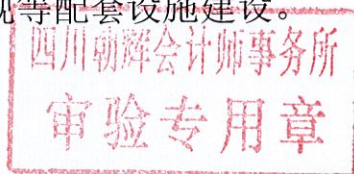 等配套设施建设。
四川朝辉会计师事务所
审验专用章